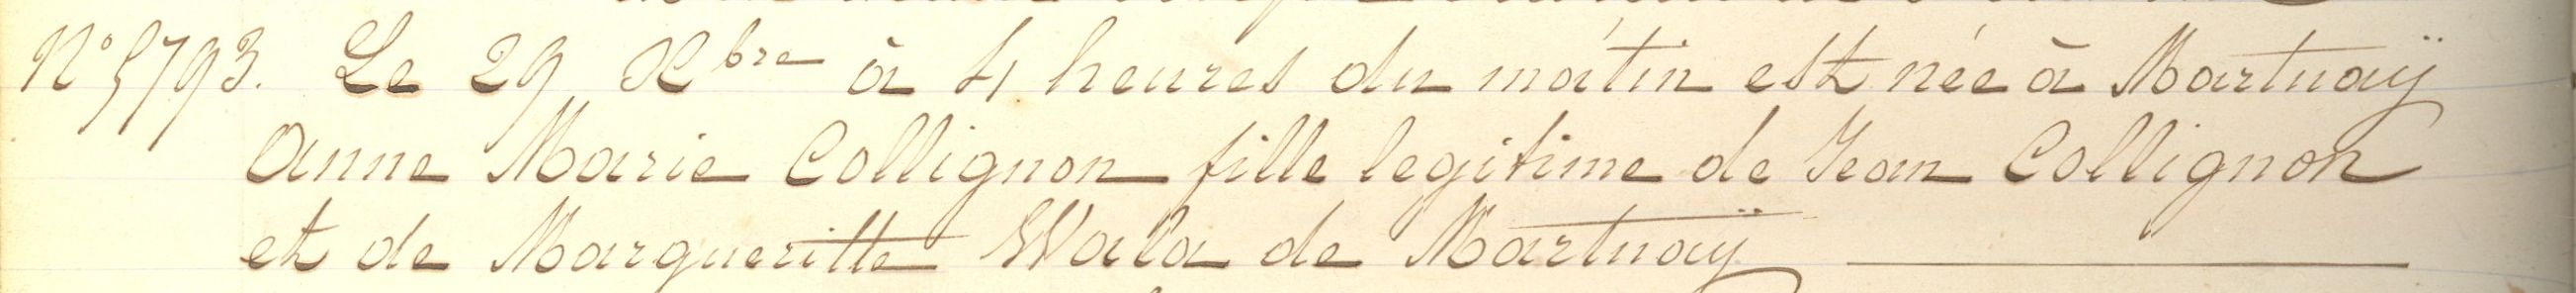 N° 5793. Le 29 Xbre à 4 heures du matin est née à Martuaÿ
Anne Marie Collignon fille legitime de Jean Collignon
et de Margueritte Wala de Martuaÿ